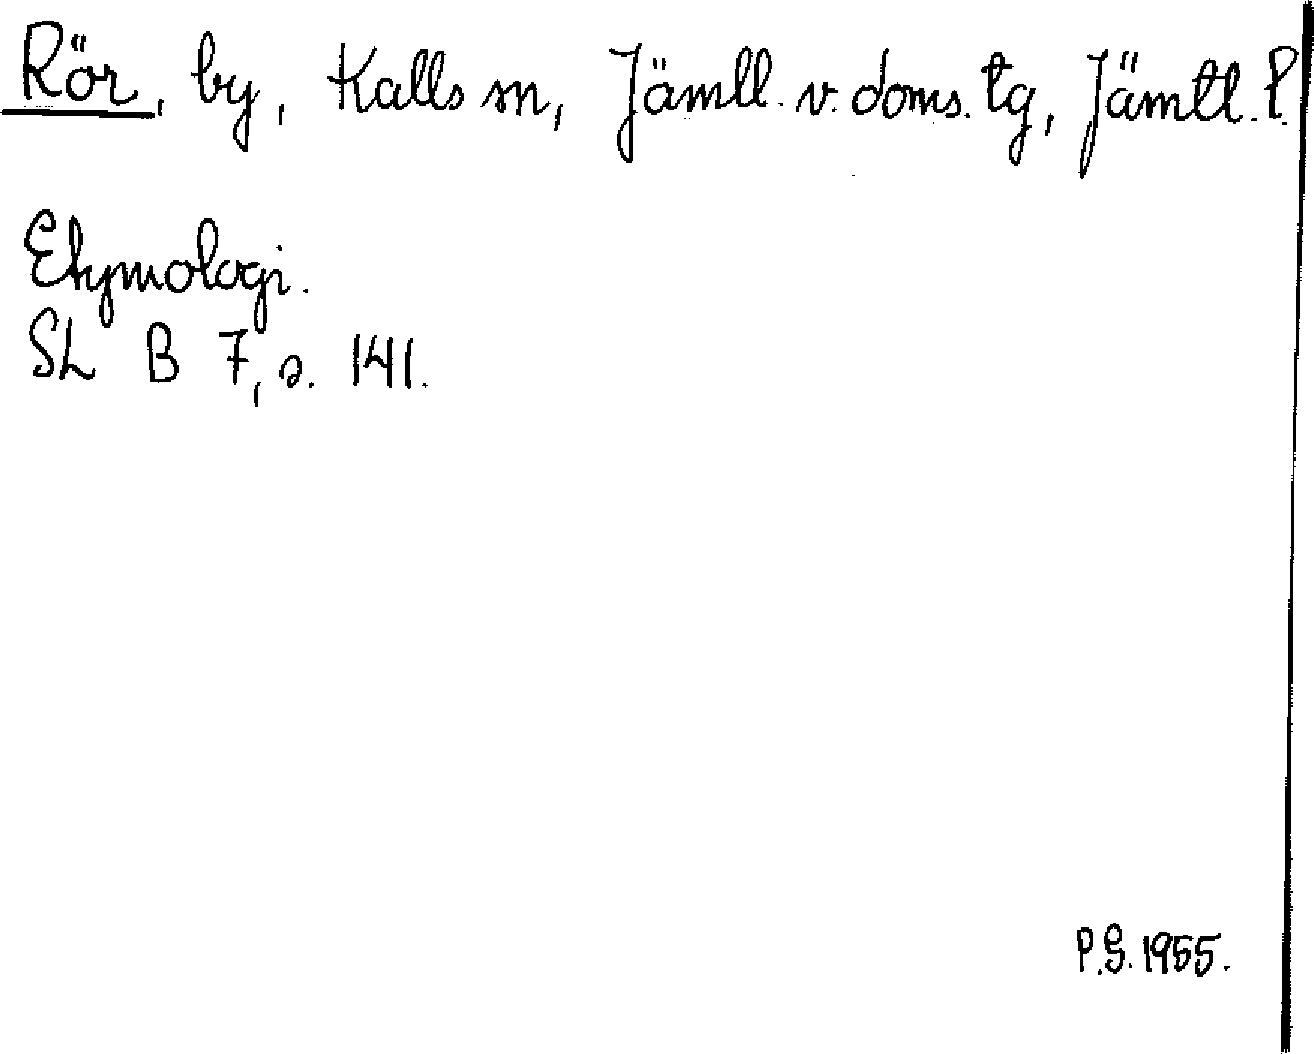 Rör, by, Kalls sn, Jämtl. v. doms. tg, Jämtl. l.
Etymologi.
SL B 7, s. 141.
P.G. 1955.